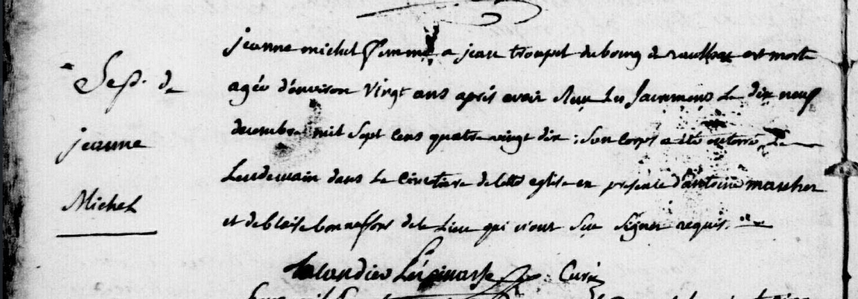 Sep. de
jeanne
Michel
jeanne michel femme a jean troupel du bourg de est morte
agée d'environ vingt ans après avoir Reçu Les Sacremens Le dix neuf
decembre mil Sept cens quatre vingt dix : Son corps a eté enterré Le
Lendemain dans Le Cimetiere de cette eglise en presence d'antoine marcher
et de blaise bonnefons de ce Lieu qui n'ont Sçu Signer requis.
Lespinasse Curé